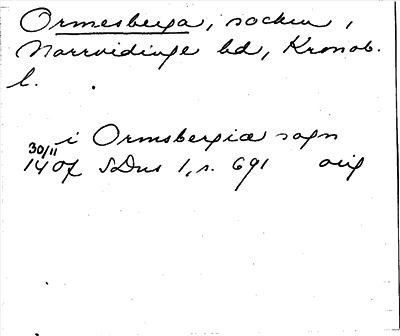 Ormesberga, socken,
Norrvidinge hd, Kronob.
l.
i Ormsbergiæ sogn
30/11
1407 SDns 1, s. 691 orig